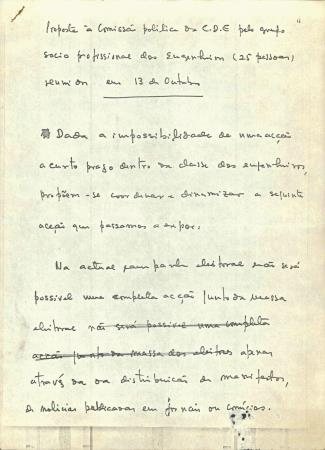 Proposta à Comissão política da C.D.E pelo grupo
socio profissional dos Engenheiros (25 pessoas)
reunidos em 13 de Outubro
Dada a impossibilidade de uma acção
a curto prazo dentro da classe dos engenheiros,
propõem-se coordenar e dinamizar a seguinte
acção que passamos a expor:
Na actual campanha eleitoral não será
possível uma completa acção junto da massa
eleitoral não será possível uma completa
acção junto da massa dos eleitores apenas
através da da distribuição de manifestos,
de notícias publicadas em jornais ou comícios.